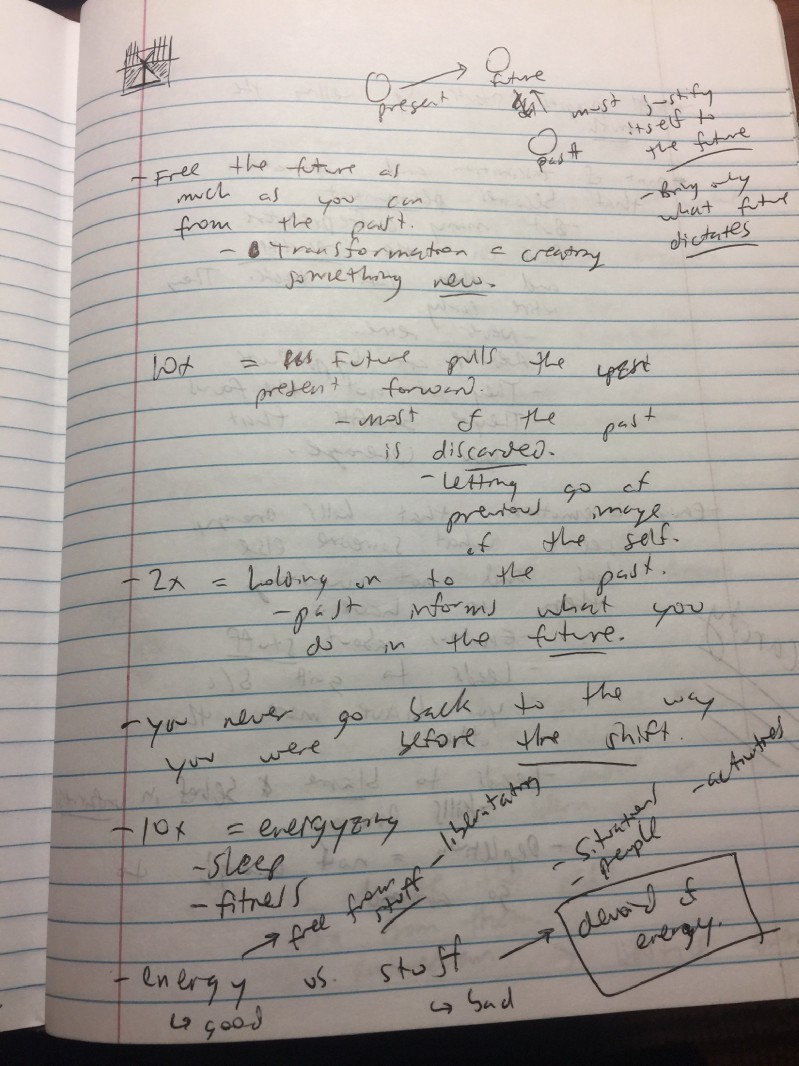 future
present
must justify
itself to
the future
past
- Free the future as
much as you can
from the past.
- Transformation = creating
something new.
- Bring only
what future
dictates
10x = Future pulls the
present forward.
- most of the past
is discarded.
- Letting go of
previous image
of the self.
- 2x = holding on to the past.
- past informs what you
do in the future.
- you never go back to the way
you were before the shift.
- 10x = energyzing
- sleep
- fitness
→ free from
stuff
- liberatating
- situations
- people
- activities
- energy vs. stuff
↳ good
↳ bad
→ devoid of
energy.